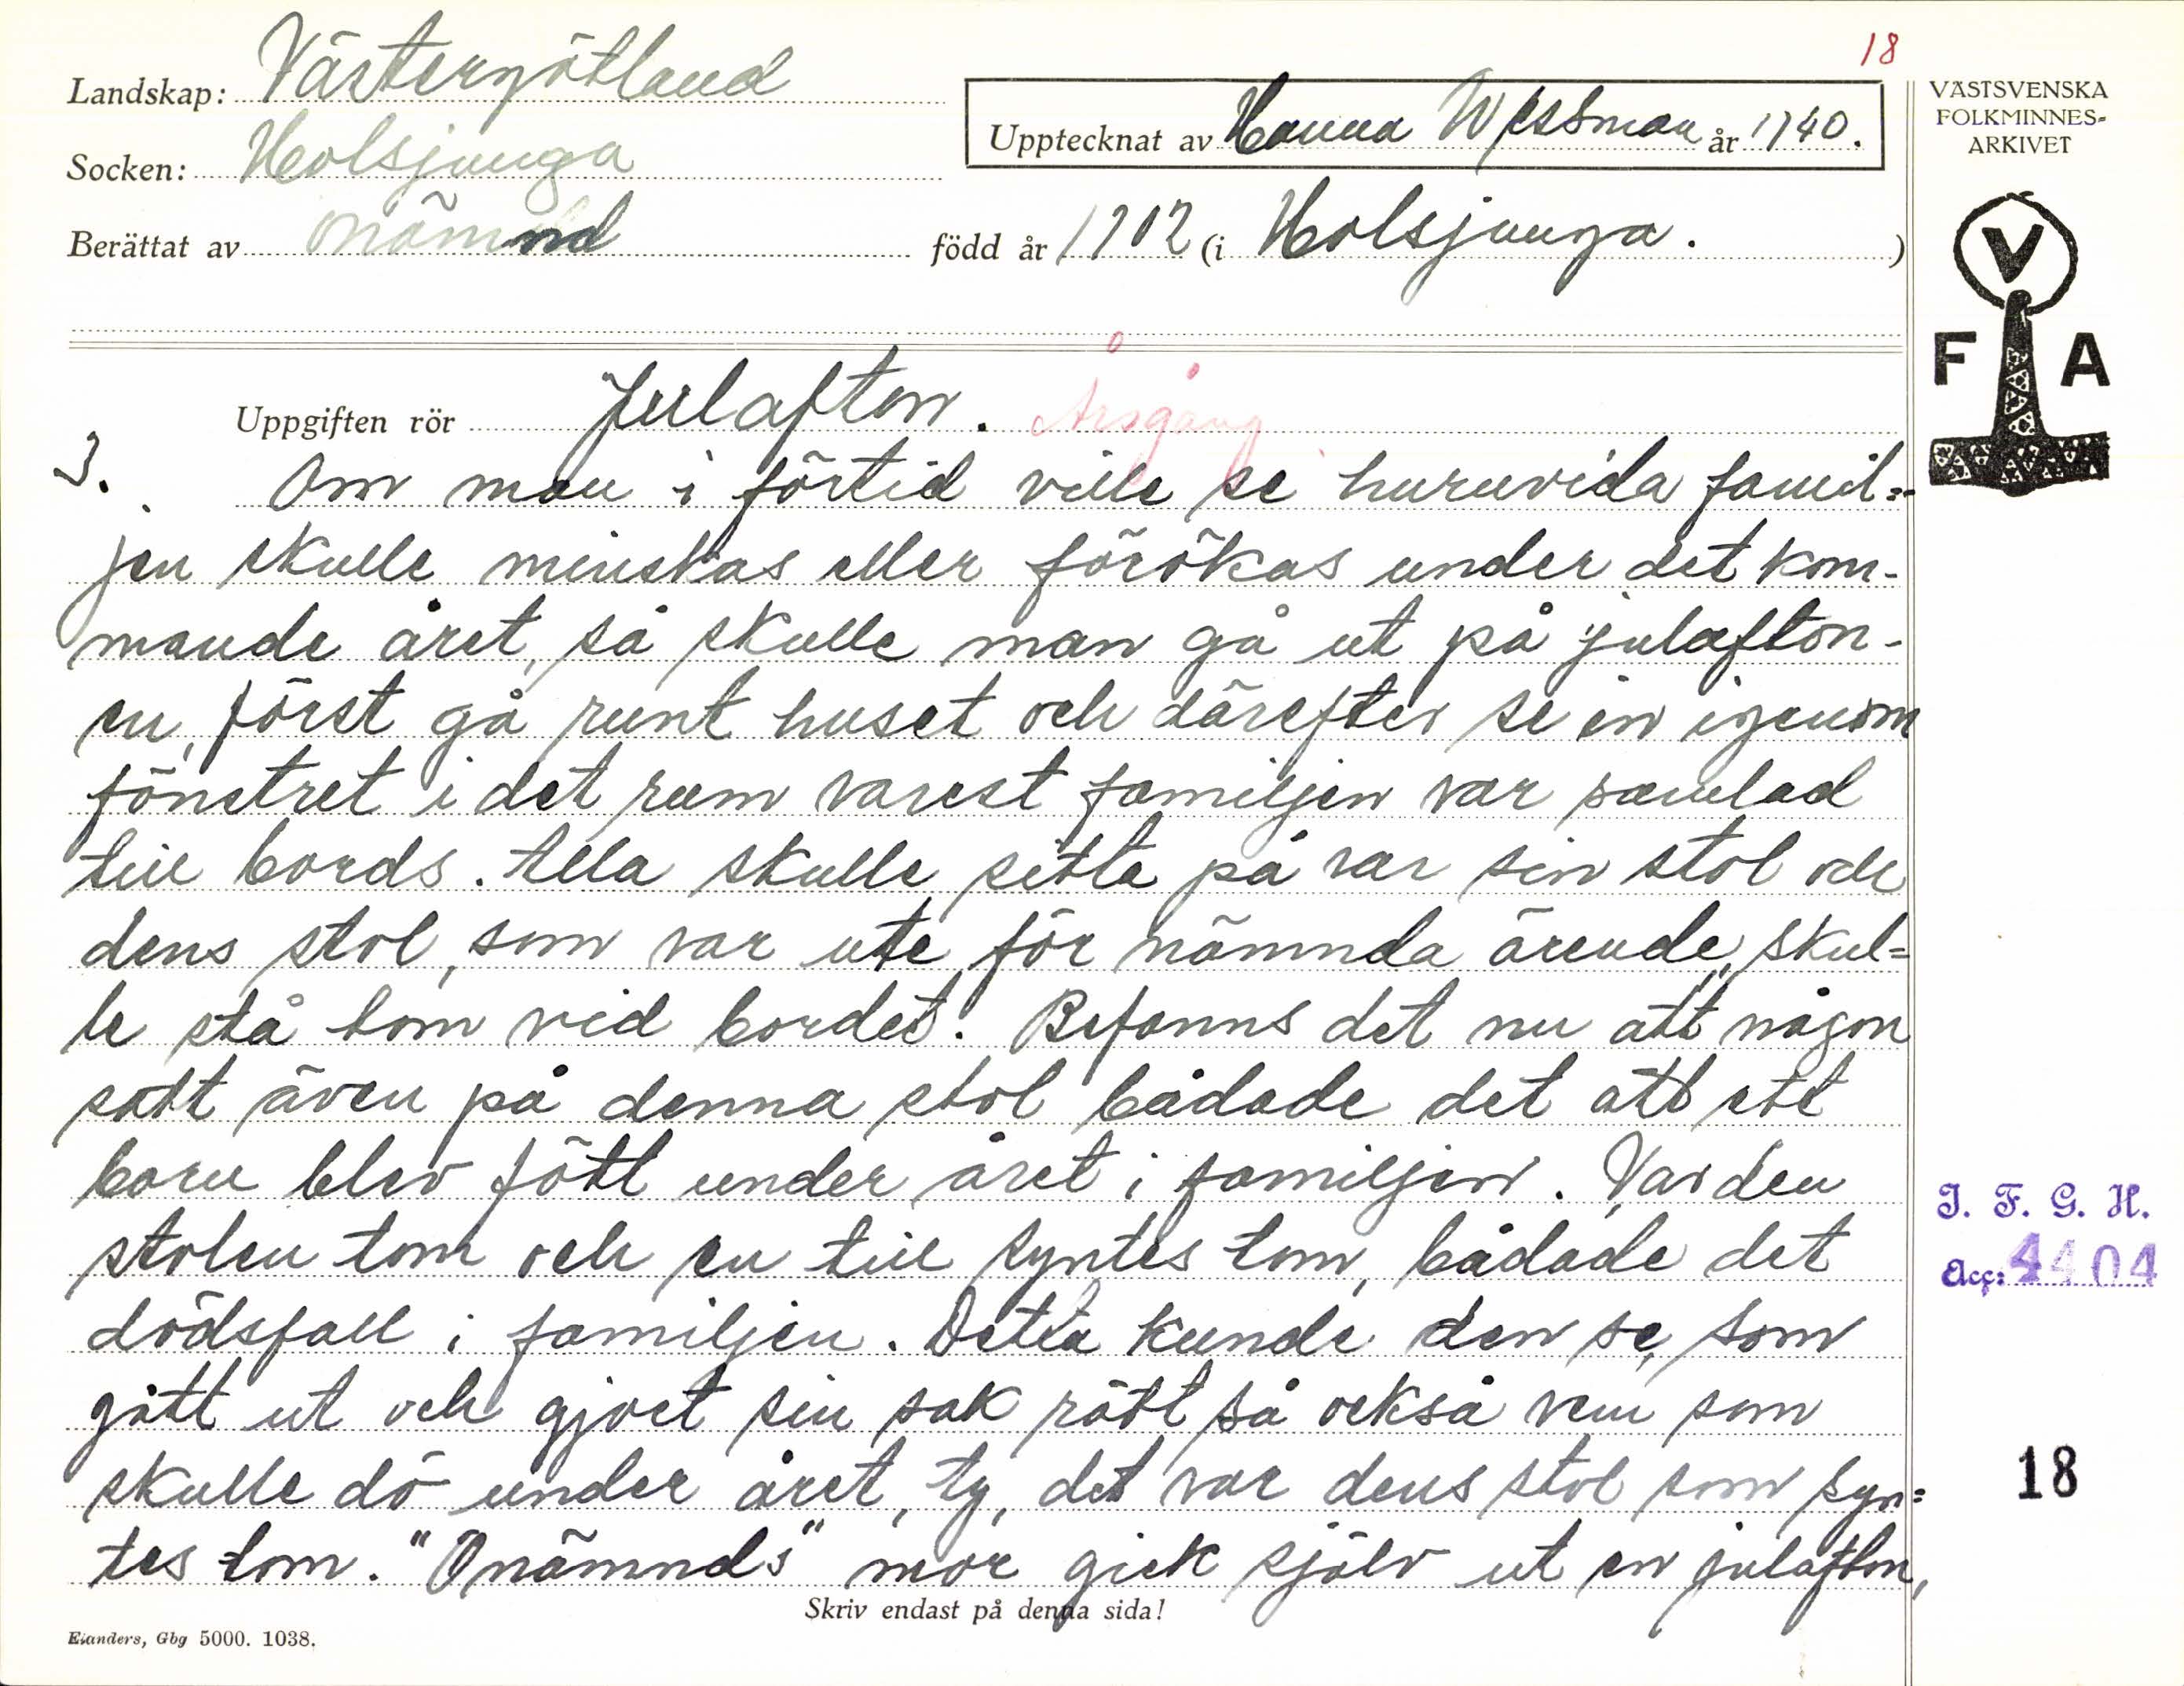 18
Landskap: Västergötland
Socken: Holsjunga
Upptecknat av Hanna Wessman år 1940.
Berättat av onämnd född år 1902 (i Holsjunga. )
VÄSTSVENSKA
FOLKMINNES-
ARKIVET
V
F A
Uppgiften rör Julafton. Årsgång
3.
Om man i förtid ville se huruvida famil=
jen skulle minskas eller förökas under det kom-
mande året, så skulle man gå ut på julafton-
en, först gå runt huset och därefter se in igenom
fönstret i det rum varest familjen var samlad
till bords. Alla skulle sitta på var sin stol och
dens stol, som var ute för nämnda ärende, skul=
le stå tom vid bordet. Befanns det nu att någon
satt även på denna stol bådade det att ett
barn blev fött under året i familjen. Var den
stolen tom och en till syntes tom, bådade det
dödsfall i familjen. Detta kunde den se, som
gått ut och gjort sin sak rätt så också vem som
skulle dö under året, ty, det var dens stol som syn=
tes tom. "Onämnds" mor gick själv ut en julafton,
Skriv endast på denna sida!
Elanders, Gbg 5000. 1038.
I. F. G. H.
Acc: 4404
18